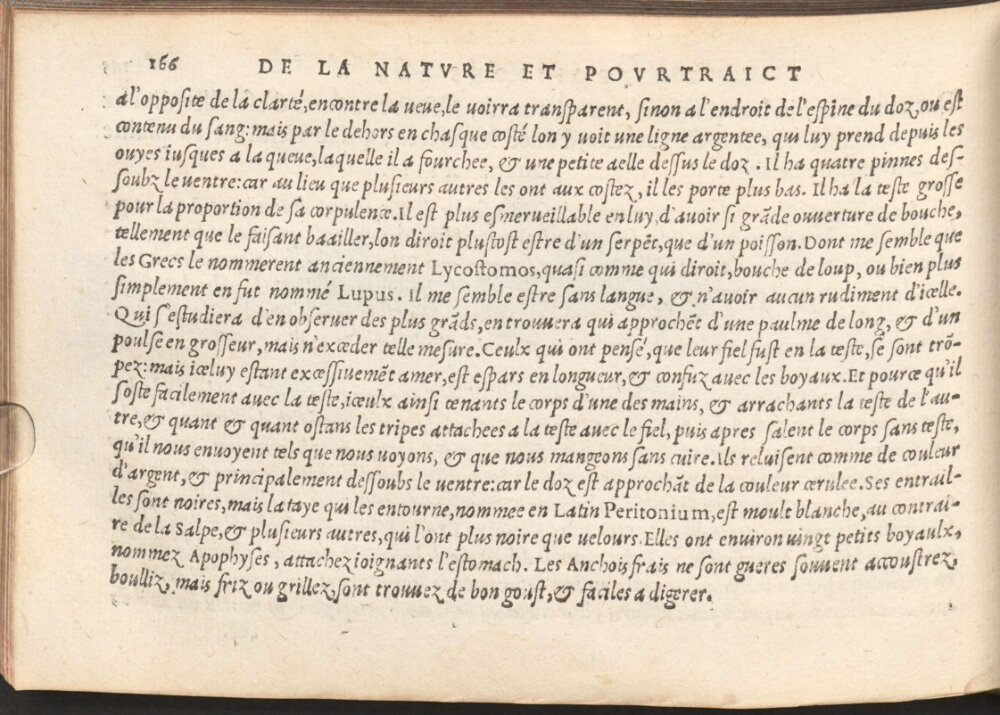 166 DE LA NATVRE ET POVRTRAICT
a l'opposite de la clarté, encontre la veue, le voirra transparent, sinon a l'endroit de l'espine du doz, ou est
contenu du sang: mais par le dehors en chasque costé lon y voit une ligne argentee, qui luy prend depuis les
ouyes iusques a la queue, laquelle il a fourchee, & une petite aelle dessus le doz. Il ha quatre pinnes des-
soubz le ventre: car au lieu que plusieurs autres les ont aux costez, il les porte plus bas. Il ha la teste grosse
pour la proportion de sa corpulence. Il est plus esmerveillable en luy, d'avoir si grãde ouverture de bouche,
tellement que le faisant baailler, lon diroit plustost estre d'un serpẽt, que d'un poisson. Dont me semble que
les Grecs le nommerent anciennement Lycostomos, quasi comme qui diroit, bouche de loup, ou bien plus
simplement en fut nommé Lupus. Il me semble estre sans langue, & n'avoir aucun rudiment d'icelle.
Qui s'estudiera d'en observer des plus grãds, en trouvera qui approchẽt d'une paulme de long, & d'un
poulse en grosseur, mais n'exceder telle mesure. Ceulx qui ont pensé, que leur fiel fust en la teste, se sont trõ-
pez: mais iceluy estant excessivemẽt amer, est espars en longueur, & confuz avec les boyaux. Et pource qu'il
s'oste facilement avec la teste, iceulx ainsi tenants le corps d'une des mains, & arrachants la teste de l'au-
tre, & quant & quant ostans les tripes attachees a la teste avec le fiel, puis apres salent le corps sans teste,
qu'il nous envoyent tels que nous voyons, & que nous mangeons sans cuire. Ils reluisent comme de couleur
d'argent, & principalement dessoubs le ventre: car le doz est approchãt de la couleur cerulee. Ses entrail-
les sont noires, mais la taye qui les entourne, nommee en Latin Peritonium, est moult blanche, au contrai-
re de la Salpe, & plusieurs autres, qui l'ont plus noire que velours. Elles ont environ vingt petits boyaulx,
nommez Apophyses, attachez ioignants l'estomach. Les Anchois frais ne sont gueres souvent accoustrez,
boulliz, mais friz ou grillez, sont trouvez de bon goust, & faciles a digerer.